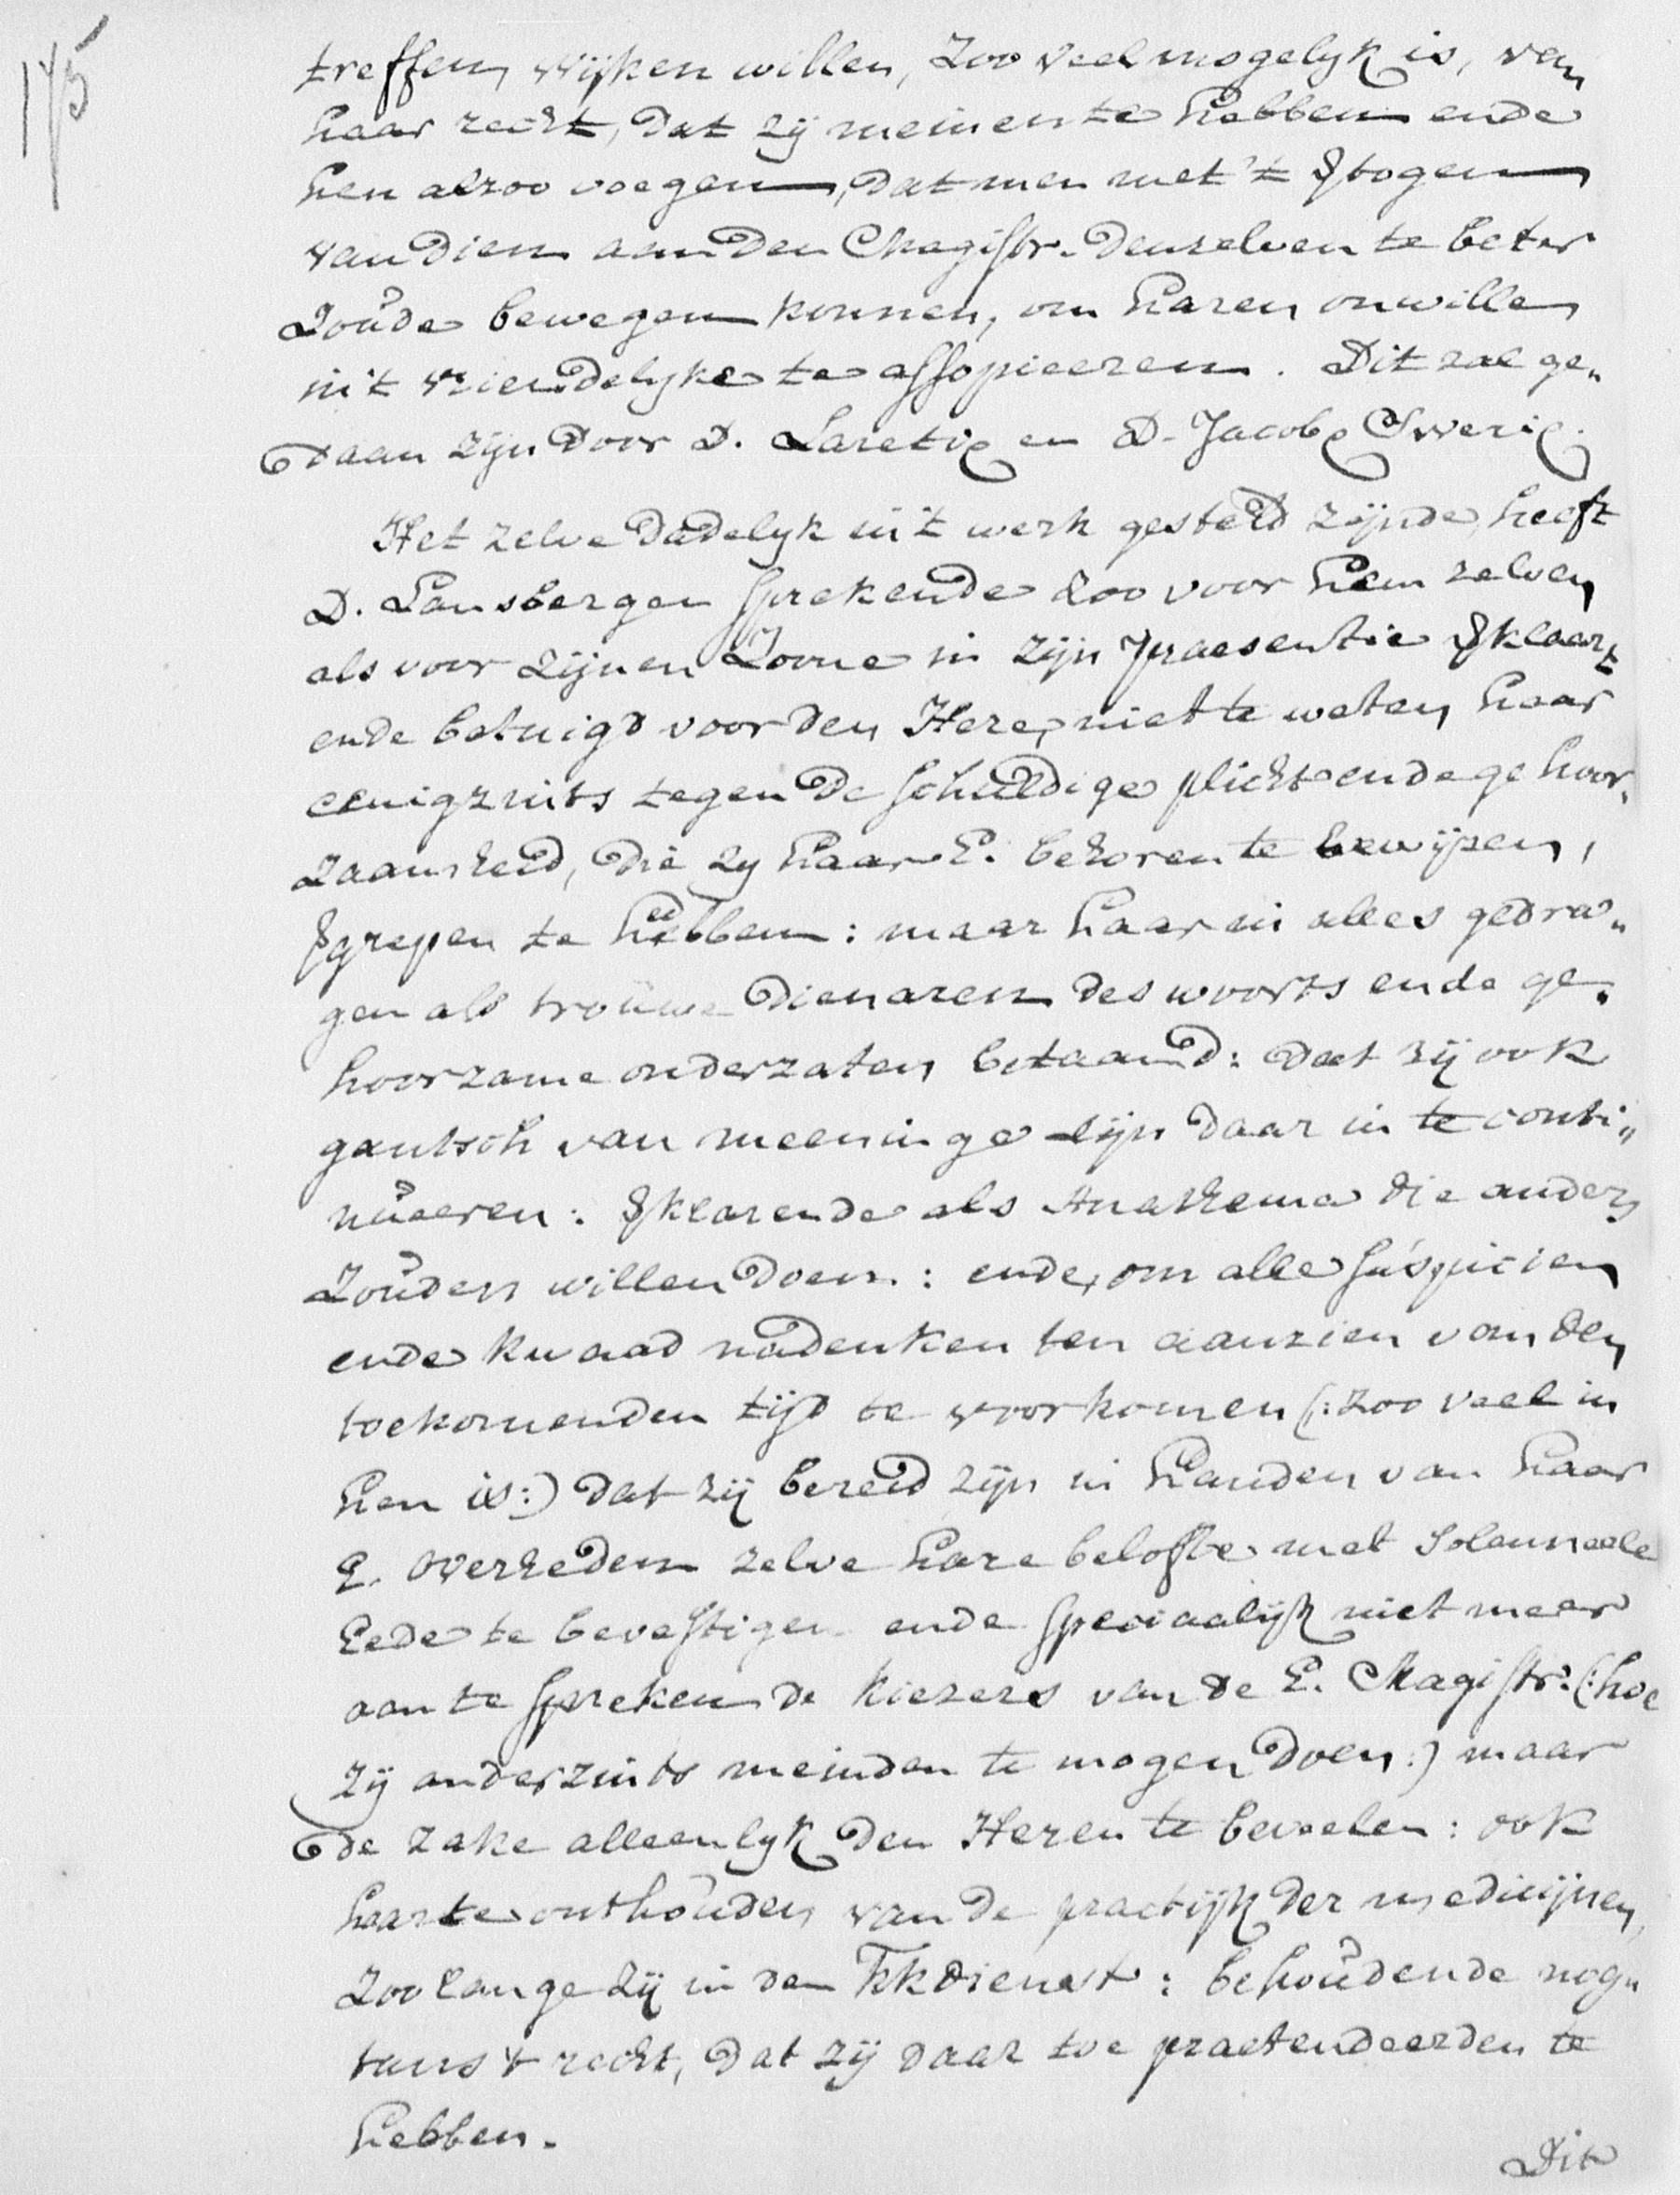 175
treffen, wijken willen, zoo veel mogelyk is, van
haar recht, dat zij meinen te hebben ende
hen alzoo voegen, dat men met 't ꝟtogen
van dien aan den Magistr. denzelven te beter
zoude bewegen konnen, om haren onwillen
in 't vriendelyke te assopieeren. Dit zal ge„
daan zijn door D. Laretię en D. Jacobę
Het zelve dadelyk in 't werk gesteld zijnde, heeft
D. Lansbergen sprekende zoo voor hem zelven
als voor zijnen Zoone in zijn praesentie ꝟklaart
ende betuigd voor den Here, niet te weten haar
eenigzints tegen de schuldige plicht ende gehoor„
zaamheid, die zy haar E. behoren te bewijzen,
ꝟgrepen te hebben: maar haar in alles gedra„
gen als trouwe dienaren des woorts ende ge„
hoorzame onderzaten betaamd: dat zij ook
gantsch van meeninge zijn daar in te conti„
nueeren: ꝟklarende als Anathema die anders
zouden willen doen: ende, om alle suspicien
ende kwaad nadenken ten aanzien van den
toekomenden tijd te voorkomen (:zoo veel in
hen is:) dat zij bereid zijn in handen van haar
E. Overheden zelve hare belofte met solemneele
Eede te bevestigen ende speciaalijk niet meer
aan te spreken de kiezers van de E. Magistr: (:hoe
zij anderzints meinden te mogen doen:) maar
de zake alleenlyk den Heren te bevelen: ook
haar te onthouden van de practijk der medicijnen,
zoo lange zij in den kkdienst: behoudende nog„
tans 't recht, dat zij daar toe praetendeerden te
hebben.
Dit